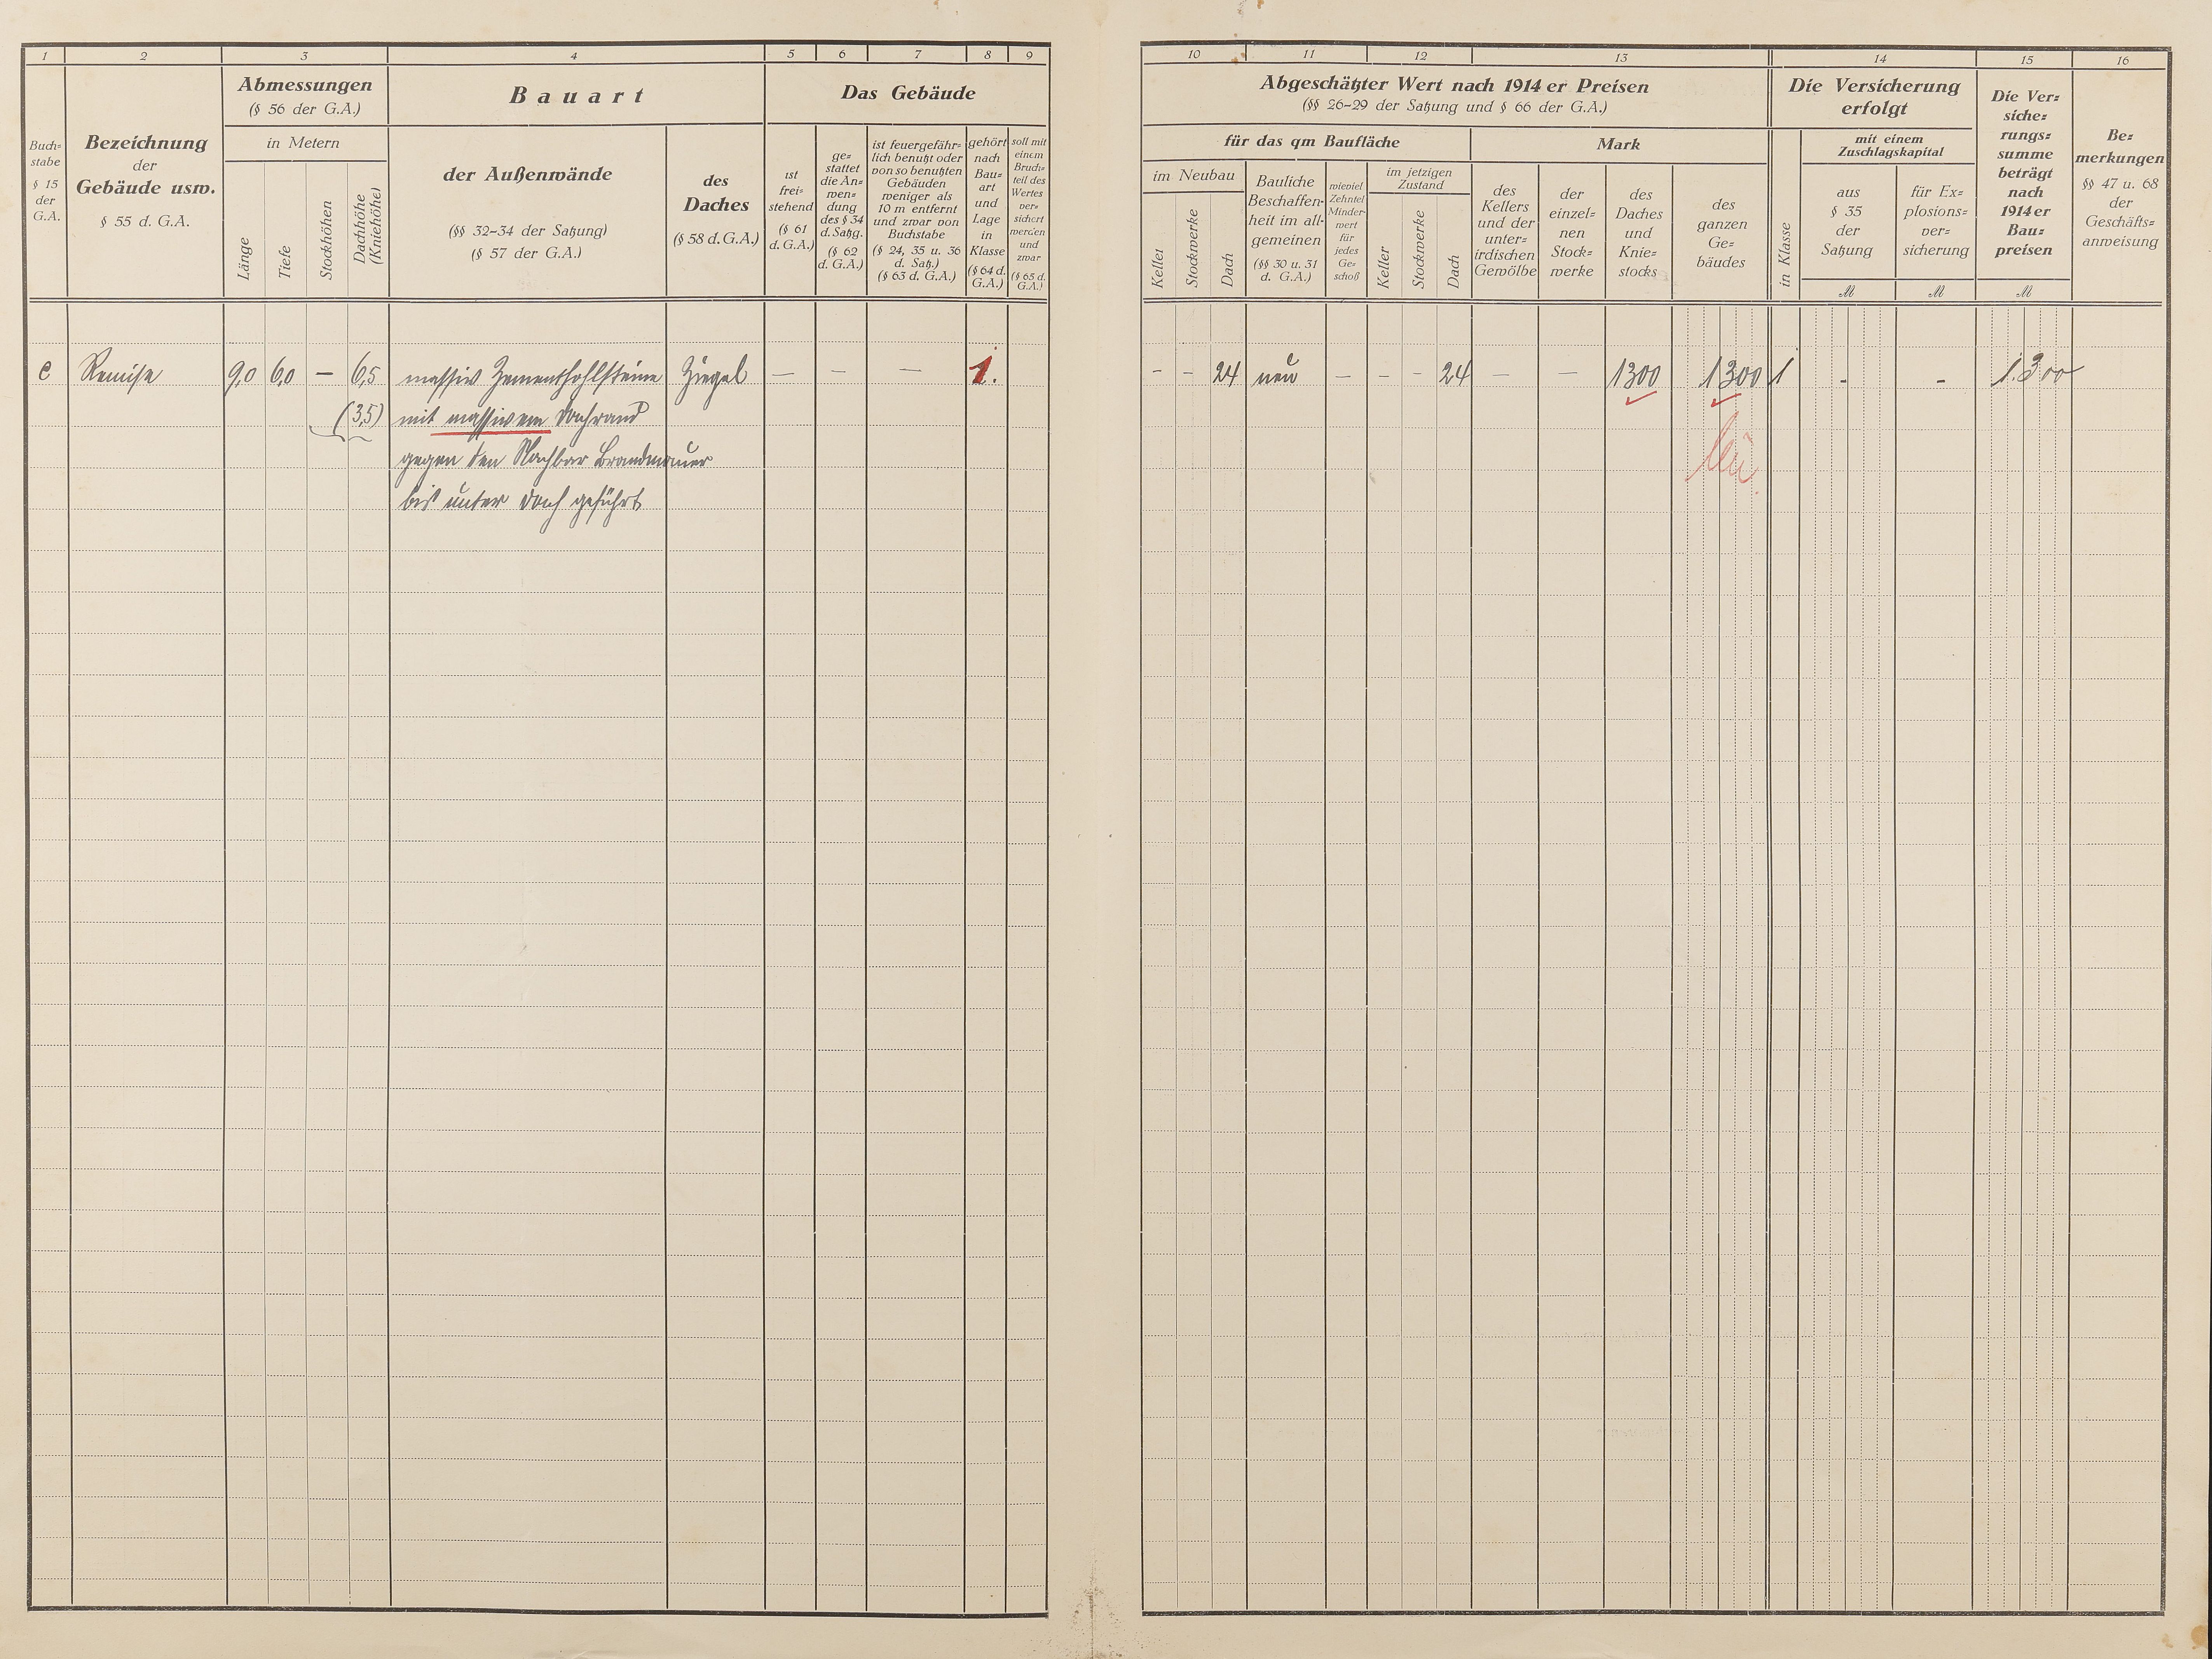 1 2 3 4 5 6 7 8 9
Buch=
stabe
§ 15
der
G.A.
Bezeichnung
der
Gebäude usw.
§ 55 d. G.A.
Abmessungen
(§ 56 der G.A.)
in Metern
Länge
Tiefe
Stockhöhen
Dachhöhe
(Kniehöhe)
Bauart
der Außenwände
(§§ 32-34 der Satzung)
(§ 57 der G.A.)
des
Daches
(§ 58 d. G.A.)
Das Gebäude
ist
frei=
stehend
(§ 61
d. G.A.)
ge=
stattet
die An=
wen=
dung
des § 34
d. Satzg.
(§ 62
d. G.A.)
ist feuergefähr=
lich benutzt oder
von so benutzten
Gebäuden
weniger als
10 m entfernt
und zwar von
Buchstabe
(§ 24, 35 u. 36
d. Satz.)
(§ 63 d. G.A.)
gehört
nach
Bau=
art
und
Lage
in
Klasse
(§ 64 d.
G.A.)
soll mit
einem
Bruch=
teil des
Wertes
ver=
sichert
werden
und
zwar
(§ 65 d.
G.A.)
e Remise 9,0 6,0 — 6,5 massiv Zementhohlsteine Ziegel — — — 1.
(3,5) mit massivem Dachrand
gegen den Nachbar Brandmauer
bis unter Dach geführt
10 11 12 13 14 15 16
Abgeschätzter Wert nach 1914 er Preisen
(§§ 26-29 der Satzung und § 66 der G.A.)
für das qm Baufläche
Mark
im Neubau
Keller
Stockwerke
Dach
Bauliche
Beschaffen=
heit im all=
gemeinen
(§§ 30 u. 31
d. G.A.)
wieviel
Zehntel
Minder=
wert
für
jedes
Ge=
schoß
im jetzigen
Zustand
Keller
Stockwerke
Dach
des
Kellers
und der
unter=
irdischen
Gewölbe
der
einzel=
nen
Stock=
werke
des
Daches
und
Knie=
stocks
des
ganzen
Ge=
bäudes
Die Versicherung
erfolgt
in Klasse
mit einem
Zuschlagskapital
aus
§ 35
der
Satzung
M
für Ex=
plosions=
ver=
sicherung
M
Die Ver=
siche=
rungs=
summe
beträgt
nach
1914 er
Bau=
preisen
M
Be=
merkungen
§§ 47 u. 68
der
Geschäfts=
anweisung
- - 24 neu — - - 24 — — 1300 1300 1 - - 1.300